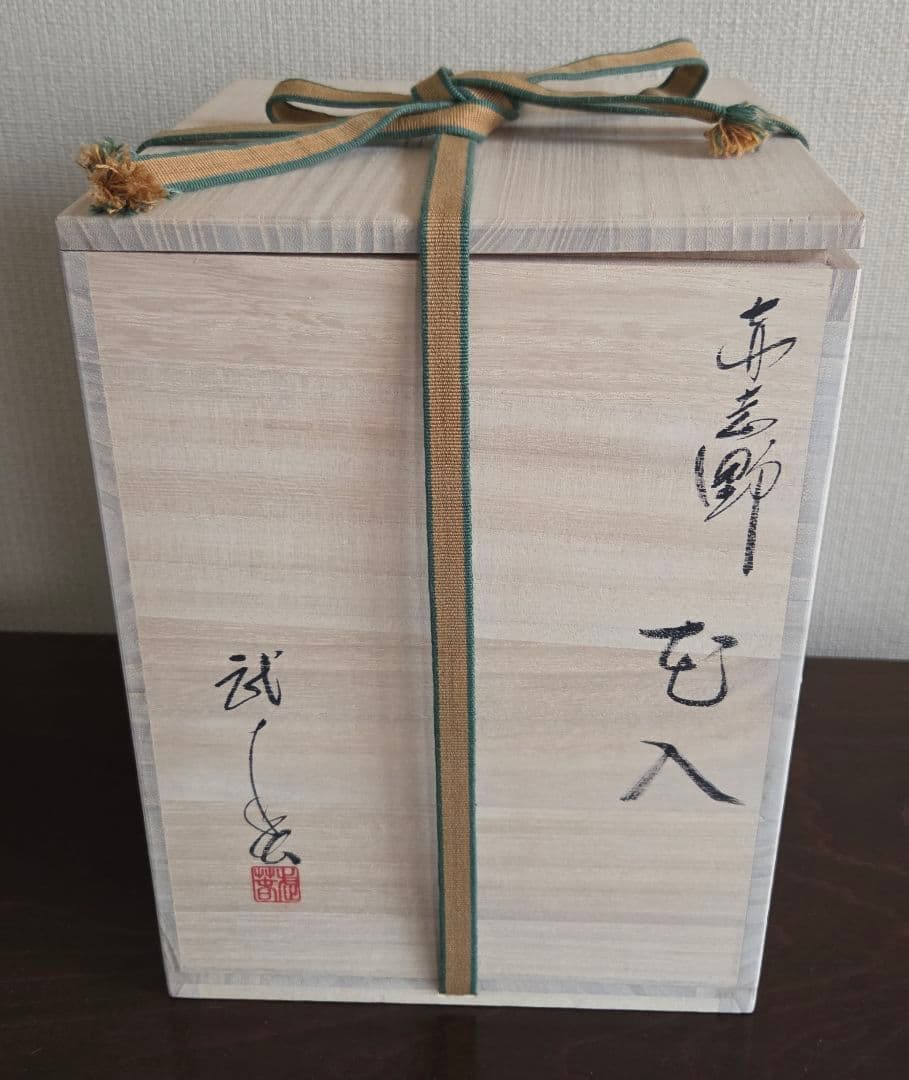 赤志野
花入
武